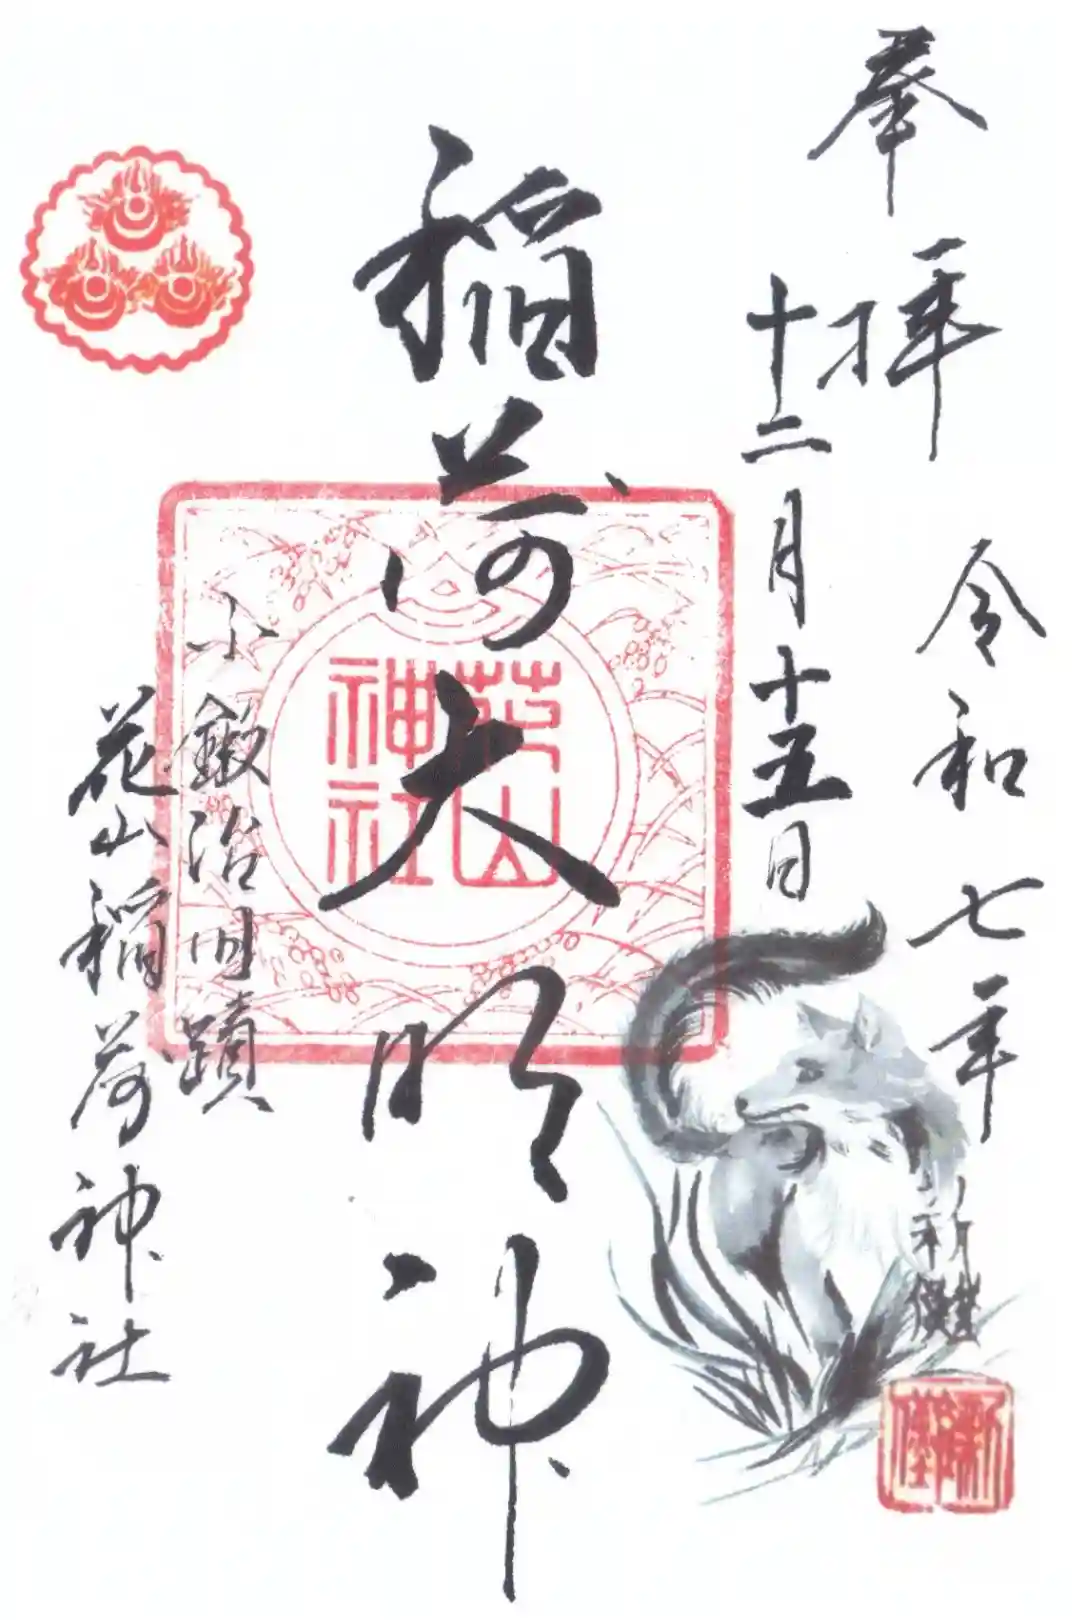 奉拝
令和七年
十二月十五日
稲荷大明神
花山
神社
小鍛治旧蹟
花山稲荷神社